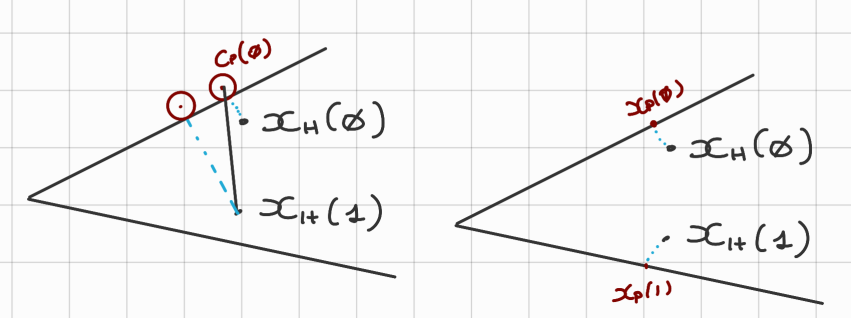 Cₚ(0)
xH(0)
xH(1)
xₚ(0)
xH(0)
xH(1)
xₚ(1)